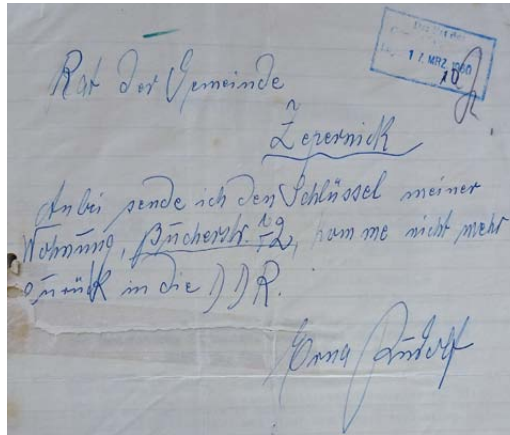 17. MRZ. 1960
Rat der Gemeinde
Zepernick
Anbei sende ich den Schlüssel meiner
Wohnung, Bücherstr. 12, komme nicht mehr
zurück in die DDR.
Erna Rudolf